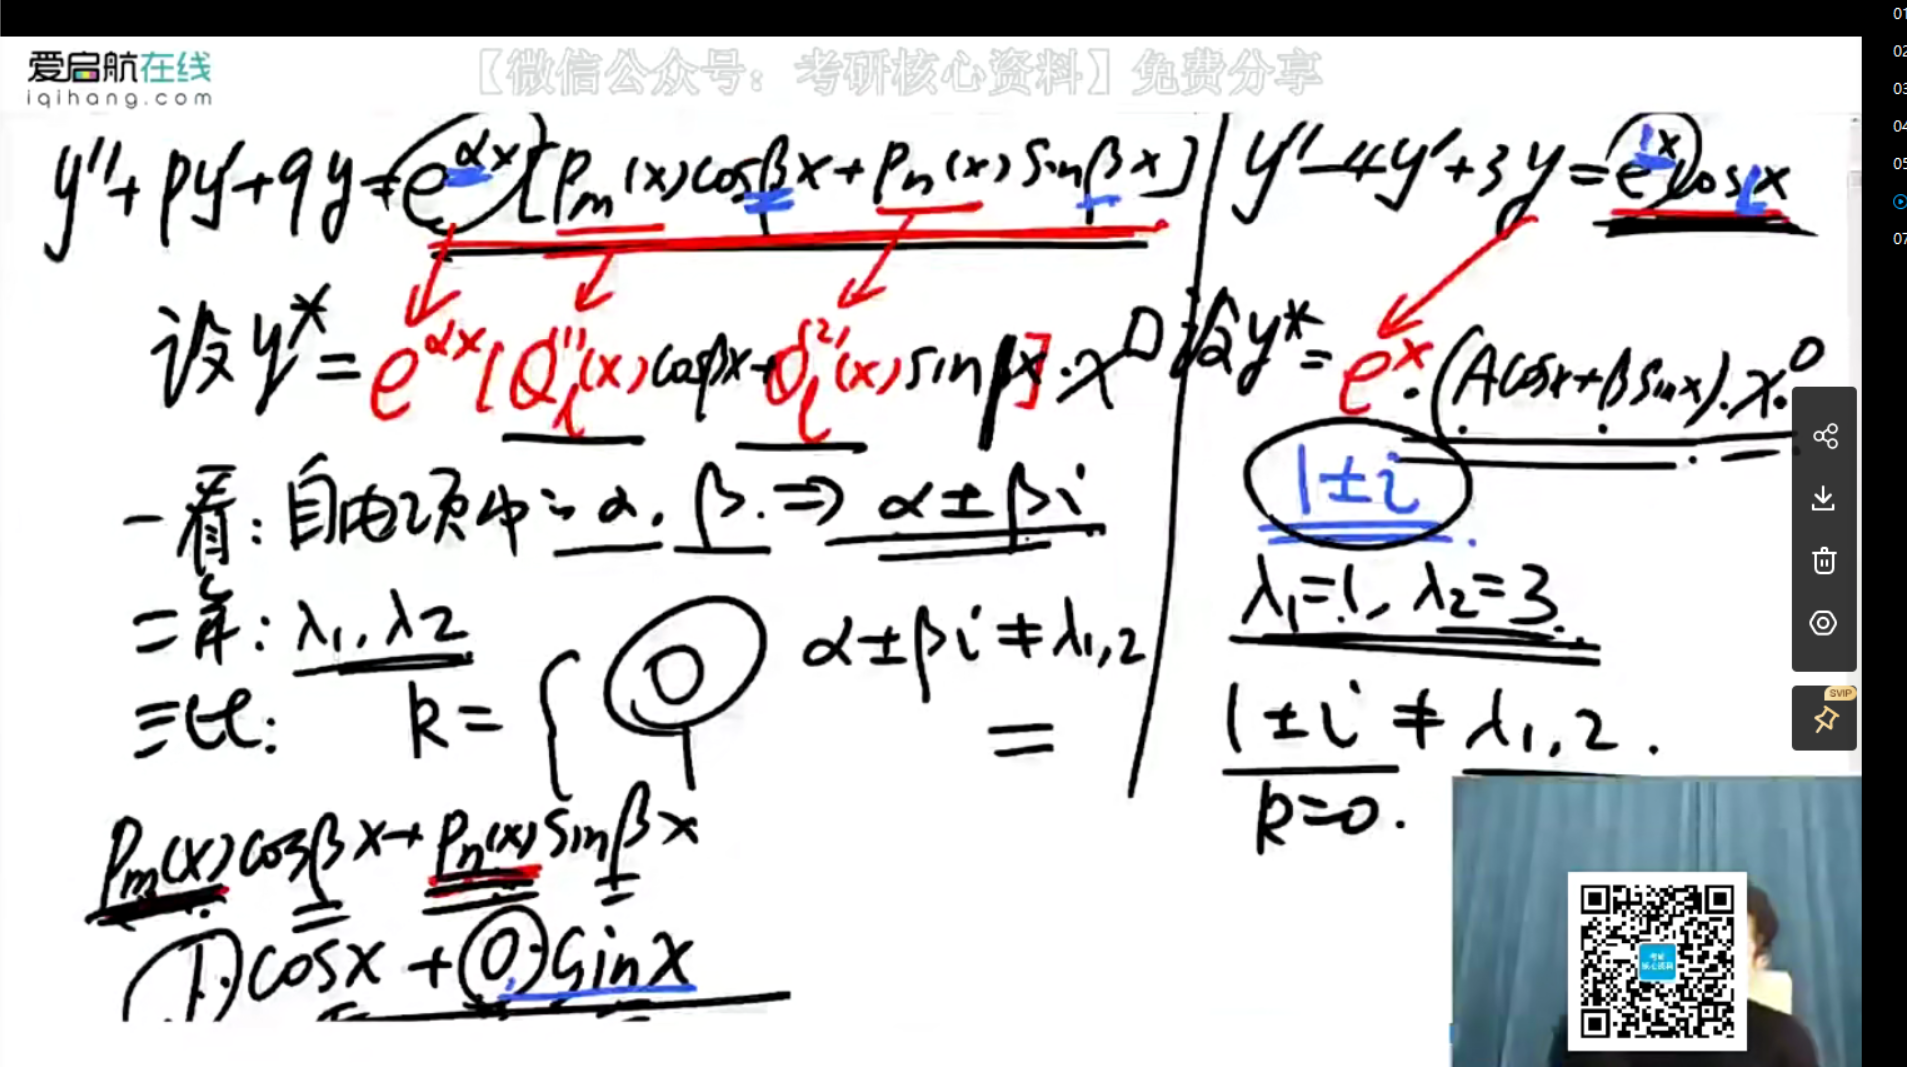 爱启航在线
iqihang.com
【微信公众号：考研核心资料】免费分享
y''+py'+qy=e^{αx}[P_m(x)cosβx+P_n(x)sinβx]
设y*=e^{αx}[Q_l^{(1)}(x)cosβx+Q_l^{(2)}(x)sinβx]·x^0
一看:自由项中:α,β.⇒α±βi
二算:λ1,λ2
三比: k={0 α±βi≠λ1,2
=
P_m(x)cosβx+P_n(x)sinβx
1·cosx+0·sinx
y''-4y'+3y=e^{1x}cos1x
设y*=e^x·(Acosx+Bsinx)·x^0
1±i
λ1=1,λ2=3.
1±i≠λ1,2.
k=0.
SVIP
考研
核心资料
01
02
03
04
05
07